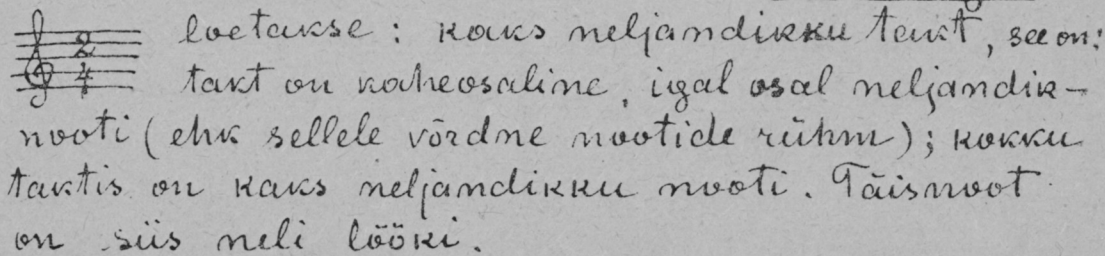 2/4 loetakse: kaks neljandikku takt, see on:
takt on kaheosaline, igal osal neljandik-
nooti (ehk sellele võrdne nootide rühm); kokku
taktis on kaks neljandikku nooti. Täisnoot
on siis neli lööki.